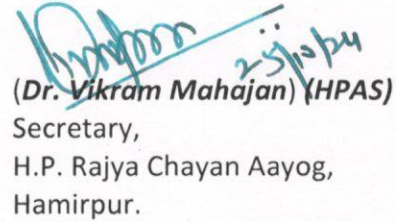 25/10/24
(Dr. Vikram Mahajan) (HPAS)
Secretary,
H.P. Rajya Chayan Aayog,
Hamirpur.